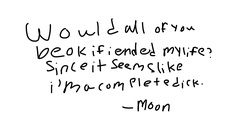 Would all of you
be ok if i ended my life?
Since it seems like
i'm a complete dick.
- Moon